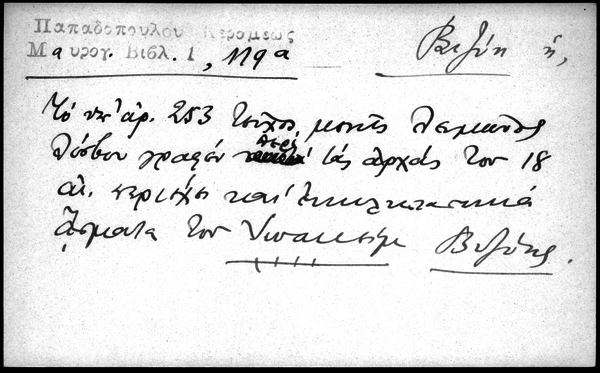 Παπαδοπούλου Κεραμέως
Μαυρογ. Βιβλ. 1, 119α
Βιζύη ἡ,
Τὸ ὑπ' ἀρ. 253 τεῦχος μονῆς Λειμῶνος
Λέσβου γραφὲν περὶ τὰς ἀρχὰς τοῦ 18
αἰ. περιέχει καὶ ἐκκλησιαστικὰ
ᾄσματα τοῦ Βιζύης.